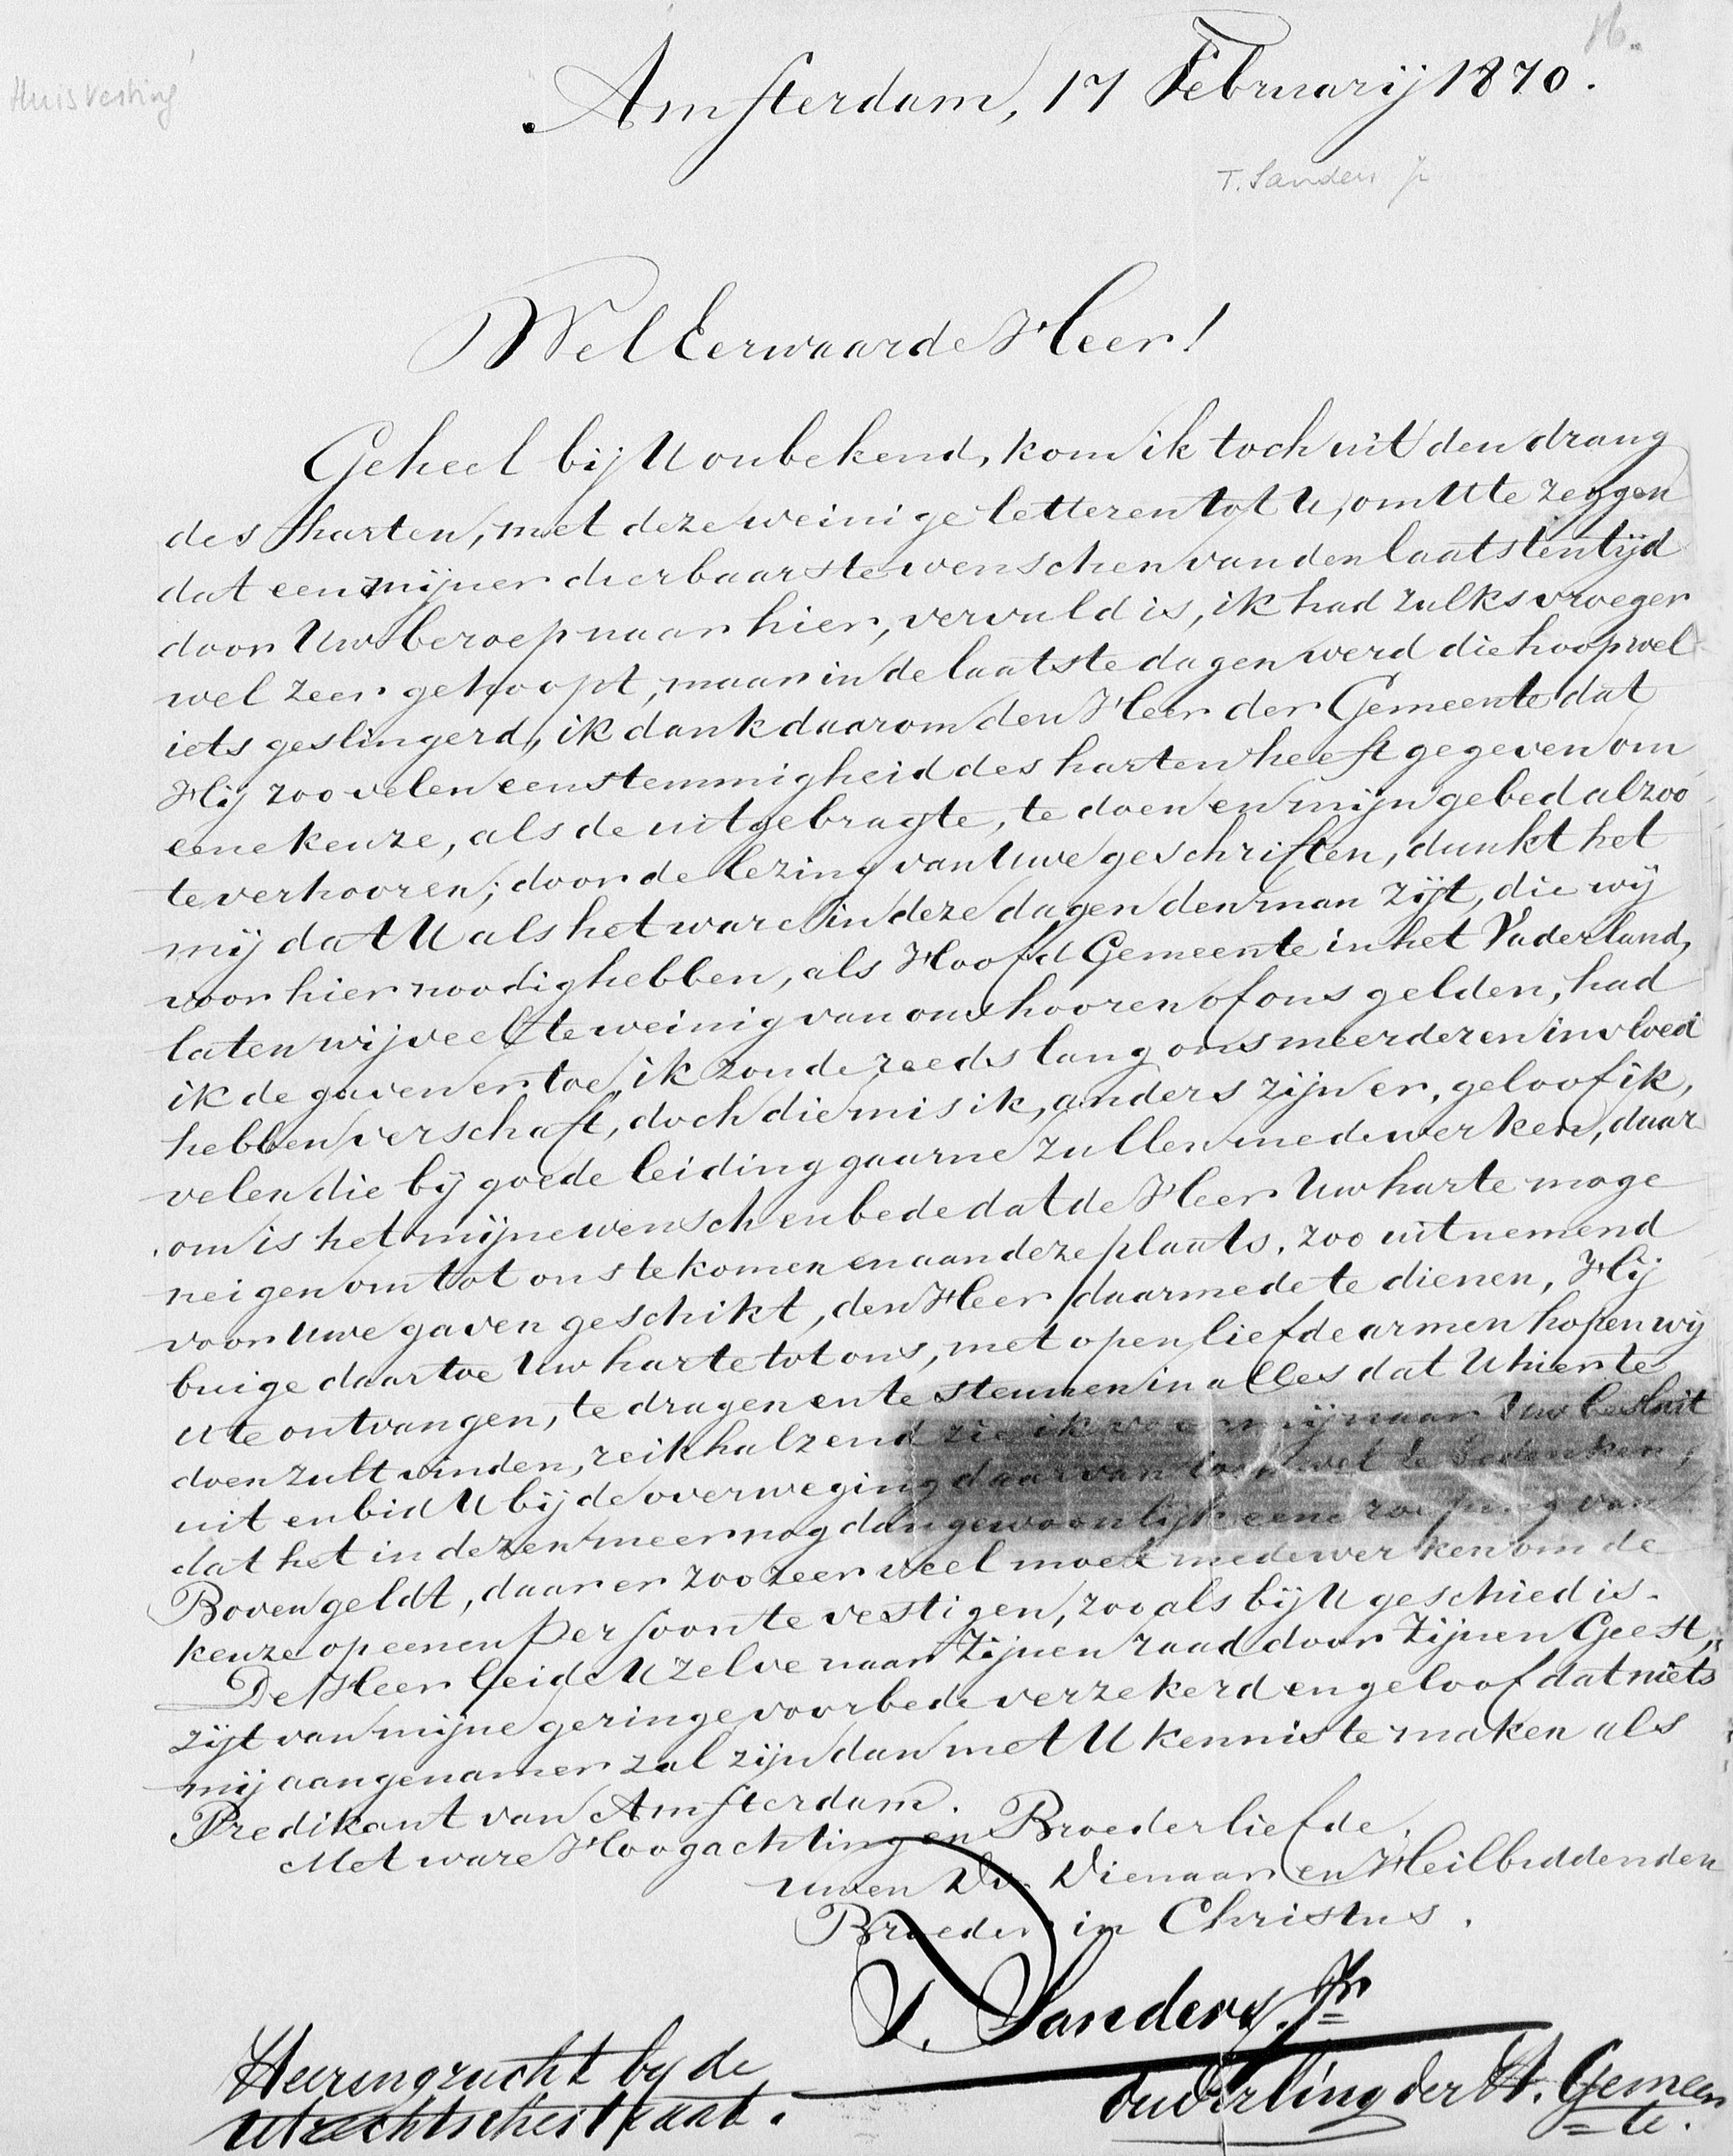 16.
Huisvesting
Amsterdam, 17 Februarij 1870.
T. Sanders Jr
Wel Eerwaarde Heer!
Geheel bij U onbekend, kom ik toch uit den drang
des harten, met deze weinige letteren tot U, om U te zeggen
dat een mijner dierbaarste wenschen van den laatsten tijd
door Uw beroep naar hier, vervuld is, ik had zulks vroeger
wel zeer gehoopt, maar in de laatste dagen werd die hoop wel
iets geslingerd, ik dank daarom den Heer der Gemeente dat
Hij zoo velen eenstemmigheid des harten heeft gegeven om
eene keuze, als de uitgebragte, te doen en mijn gebed alzoo
te verhooren; door de lezing van Uwe geschriften, dunkt het
mij dat U als het ware in deze dagen den man zijt, die wij
voor hier noodig hebben, als Hoofd Gemeente in het Vaderland,
laten wij veel te weinig van ons hooren of ons gelden, had
ik de gaven er toe, ik zoude reeds lang ons meerderen invloed
hebben verschaft, doch die mis ik, anders zijn er, geloof ik,
velen die bij goede leiding gaarne zullen medewerken, daar
om is het mijne wensch en bede dat de Heer Uw harte moge
neigen om tot ons te komen en aan deze plaats, zoo uitnemend
voor Uwe gaven geschikt, den Heer daarmede te dienen, Hij
buige daartoe Uw harte tot ons, met open liefde armen hopen wij
U te ontvangen, te dragen en te steunen in alles dat U hier te
doen zult vinden, reikhalzend zie ik voor mij naar Uw besluit
uit en bid U bij de overweging daarvan toch wel te bedenken,
dat het in dezen meer nog dan gewoonlijk eene roeping van
Boven geldt, daar er zoo zeer veel moet medewerken om de
keuze op eenen persoon te vestigen, zoo als bij U geschied is.
De Heer leide U zelve naar Zijnen raad door Zijnen Geest,
zijt van mijne geringe voorbede verzekerd en geloof dat niets
mij aangenamer zal zijn dan met U kennis te maken als
Predikant van Amsterdam.
Met ware Hoogachting en Broederliefde,
uwen Dw. Dienaar en Heilbiddenden
Broeder in Christus.
T. Sanders Jr
Heerengracht by de
Utrechtschestraat.
Ouderling der H. Gemeen
te.